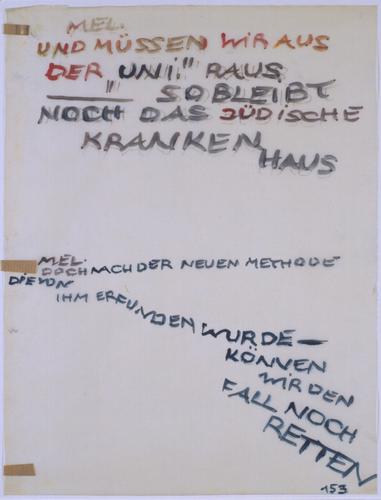 MEL.
UND MÜSSEN WIR AUS
DER "UNI." RAUS
" SO BLEIBT
NOCH DAS JÜDISCHE
KRANKEN
HAUS
MEL.
DOCH NACH DER NEUEN METHODE
DIE VON
IHM ERFUNDEN WURDE —
KÖNNEN
WIR DEN
FALL NOCH
RETTEN
153